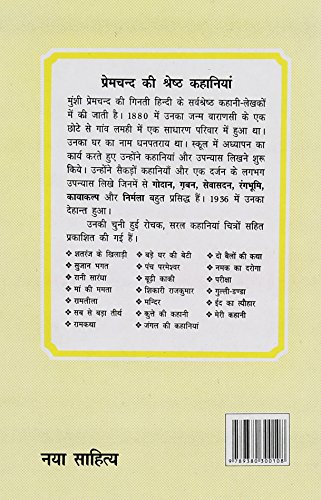 प्रेमचन्द की श्रेष्ठ कहानियां
मुंशी प्रेमचन्द की गिनती हिन्दी के सर्वश्रेष्ठ कहानी-लेखकों
में की जाती है। 1880 में उनका जन्म वाराणसी के एक
छोटे से गांव लमही में एक साधारण परिवार में हुआ था।
उनका घर का नाम धनपतराय था। स्कूल में अध्यापन का
कार्य करते हुए उन्होंने कहानियां और उपन्यास लिखने शुरू
किये। उन्होंने सैकड़ों कहानियाँ और एक दर्जन के लगभग
उपन्यास लिखे जिनमें से गोदान, ग़बन, सेवासदन, रंगभूमि,
कायाकल्प और निर्मला बहुत प्रसिद्ध हैं। 1936 में उनका
देहान्त हुआ।
उनकी चुनी हुई रोचक, सरल कहानियां चित्रों सहित
प्रकाशित की गई हैं।
* शतरंज के खिलाड़ी * बड़े घर की बेटी * दो बैलों की कथा
* सुजान भगत * पंच परमेश्वर * नमक का दरोगा
* रानी सारंधा * बूढ़ी काकी * परीक्षा
* मां की ममता * शिकारी राजकुमार * गुल्ली-डण्डा
* रामलीला * मन्दिर * ईद का त्यौहार
* सब से बड़ा तीर्थ * कुत्ते की कहानी * मेरी कहानी
* रामकथा * जंगल की कहानियां
नया साहित्य
9 789380 300108